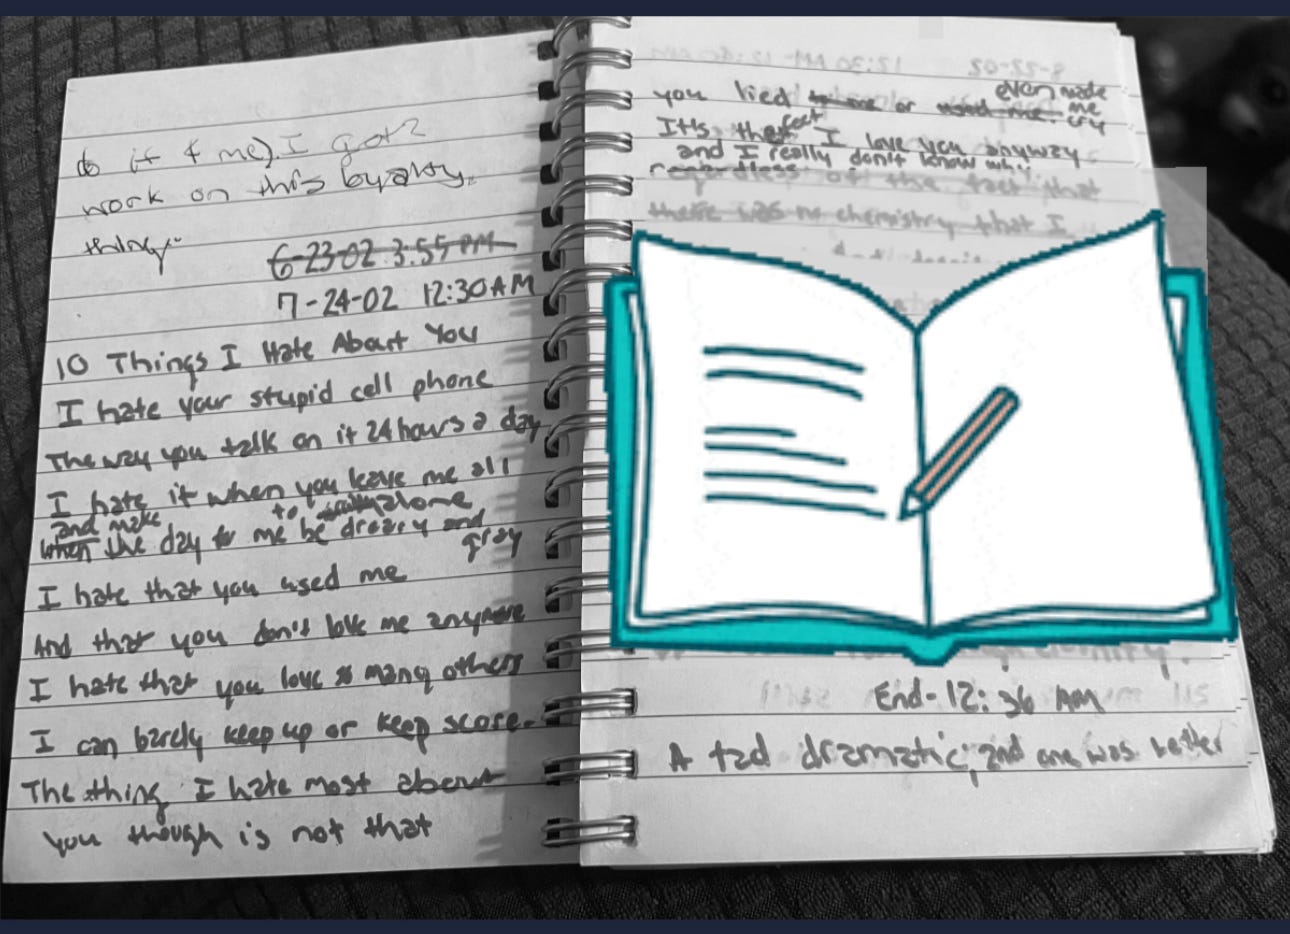 do it 4 me). I gotz
work on this byaby
thing.
6-23-02 3:55 PM
7-24-02 12:30 AM
10 Things I Hate About You
I hate your stupid cell phone
The way you talk on it 24 hours a day
I hate it when you leave me all
alone
and make to
when the day for me be dreary and
gray
I hate that you used me
And that you don't love me anymore
I hate that you love so many others
I can barely keep up or keep score.
The thing I hate most about
you though is not that
even made
you lied to me or used me. me cry
It's the fact I love you anyway
and I really don't know why
regardless of the fact that
there was no chemistry that I
End- 12:36 AM
A tad dramatic; 2nd one was better